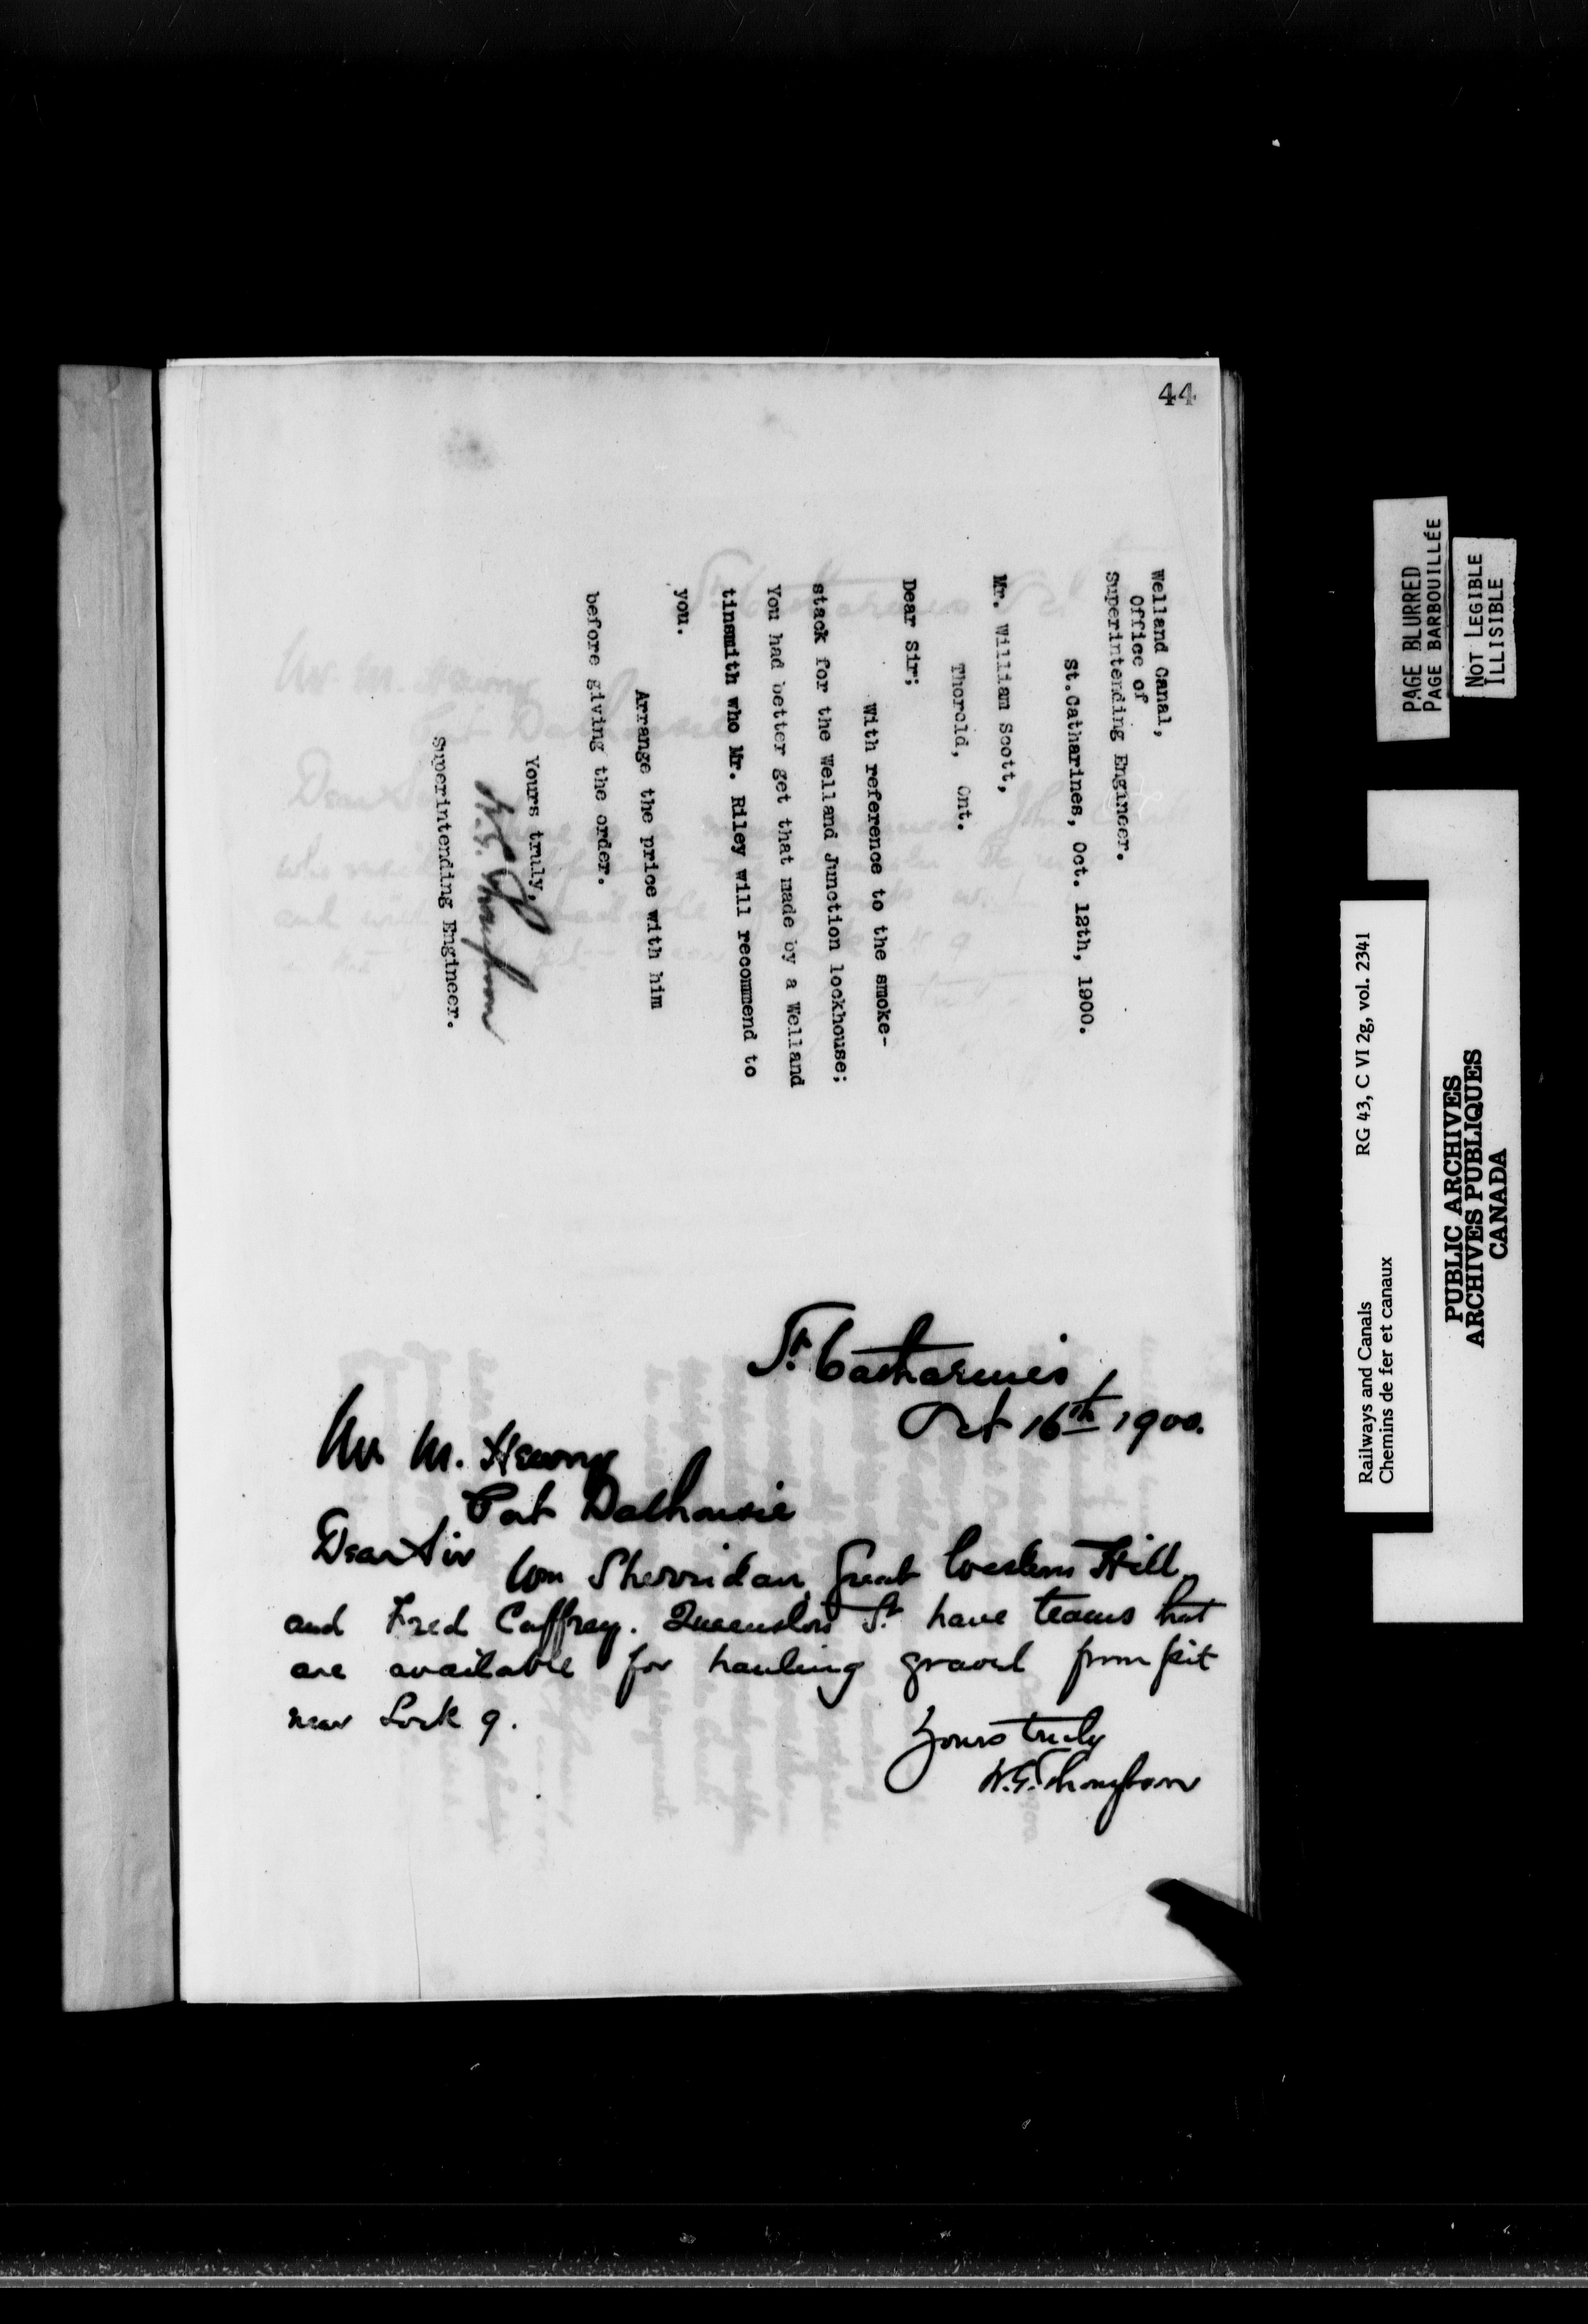 44
Welland Canal,
Office of
Superintending Engineer.
St.Catharines, Oct. 12th, 1900.
Mr. William Scott,
Thorold, Ont.
Dear Sir;
With reference to the smoke-
stack for the Welland Junction lockhouse;
You had better get that made by a Welland
tinsmith who Mr. Riley will recommend to
you.
Arrange the price with him
before giving the order.
Yours truly,
Superintending Engineer.
St. Catharines
Oct 16th 1900.
Mr M.
Port Dalhousie
Dear Sir
Wm Sherridan, Great Western Hill
and Fred Caffray. Queenston St. have teams that
are available for hauling gravel from pit
near Lock 9.
Yours truly
PAGE BLURRED
PAGE BARBOUILLÉE
NOT LEGIBLE
ILLISIBLE
Railways and Canals RG 43, C VI 2g, vol. 2341
Chemins de fer et canaux
PUBLIC ARCHIVES
ARCHIVES PUBLIQUES
CANADA